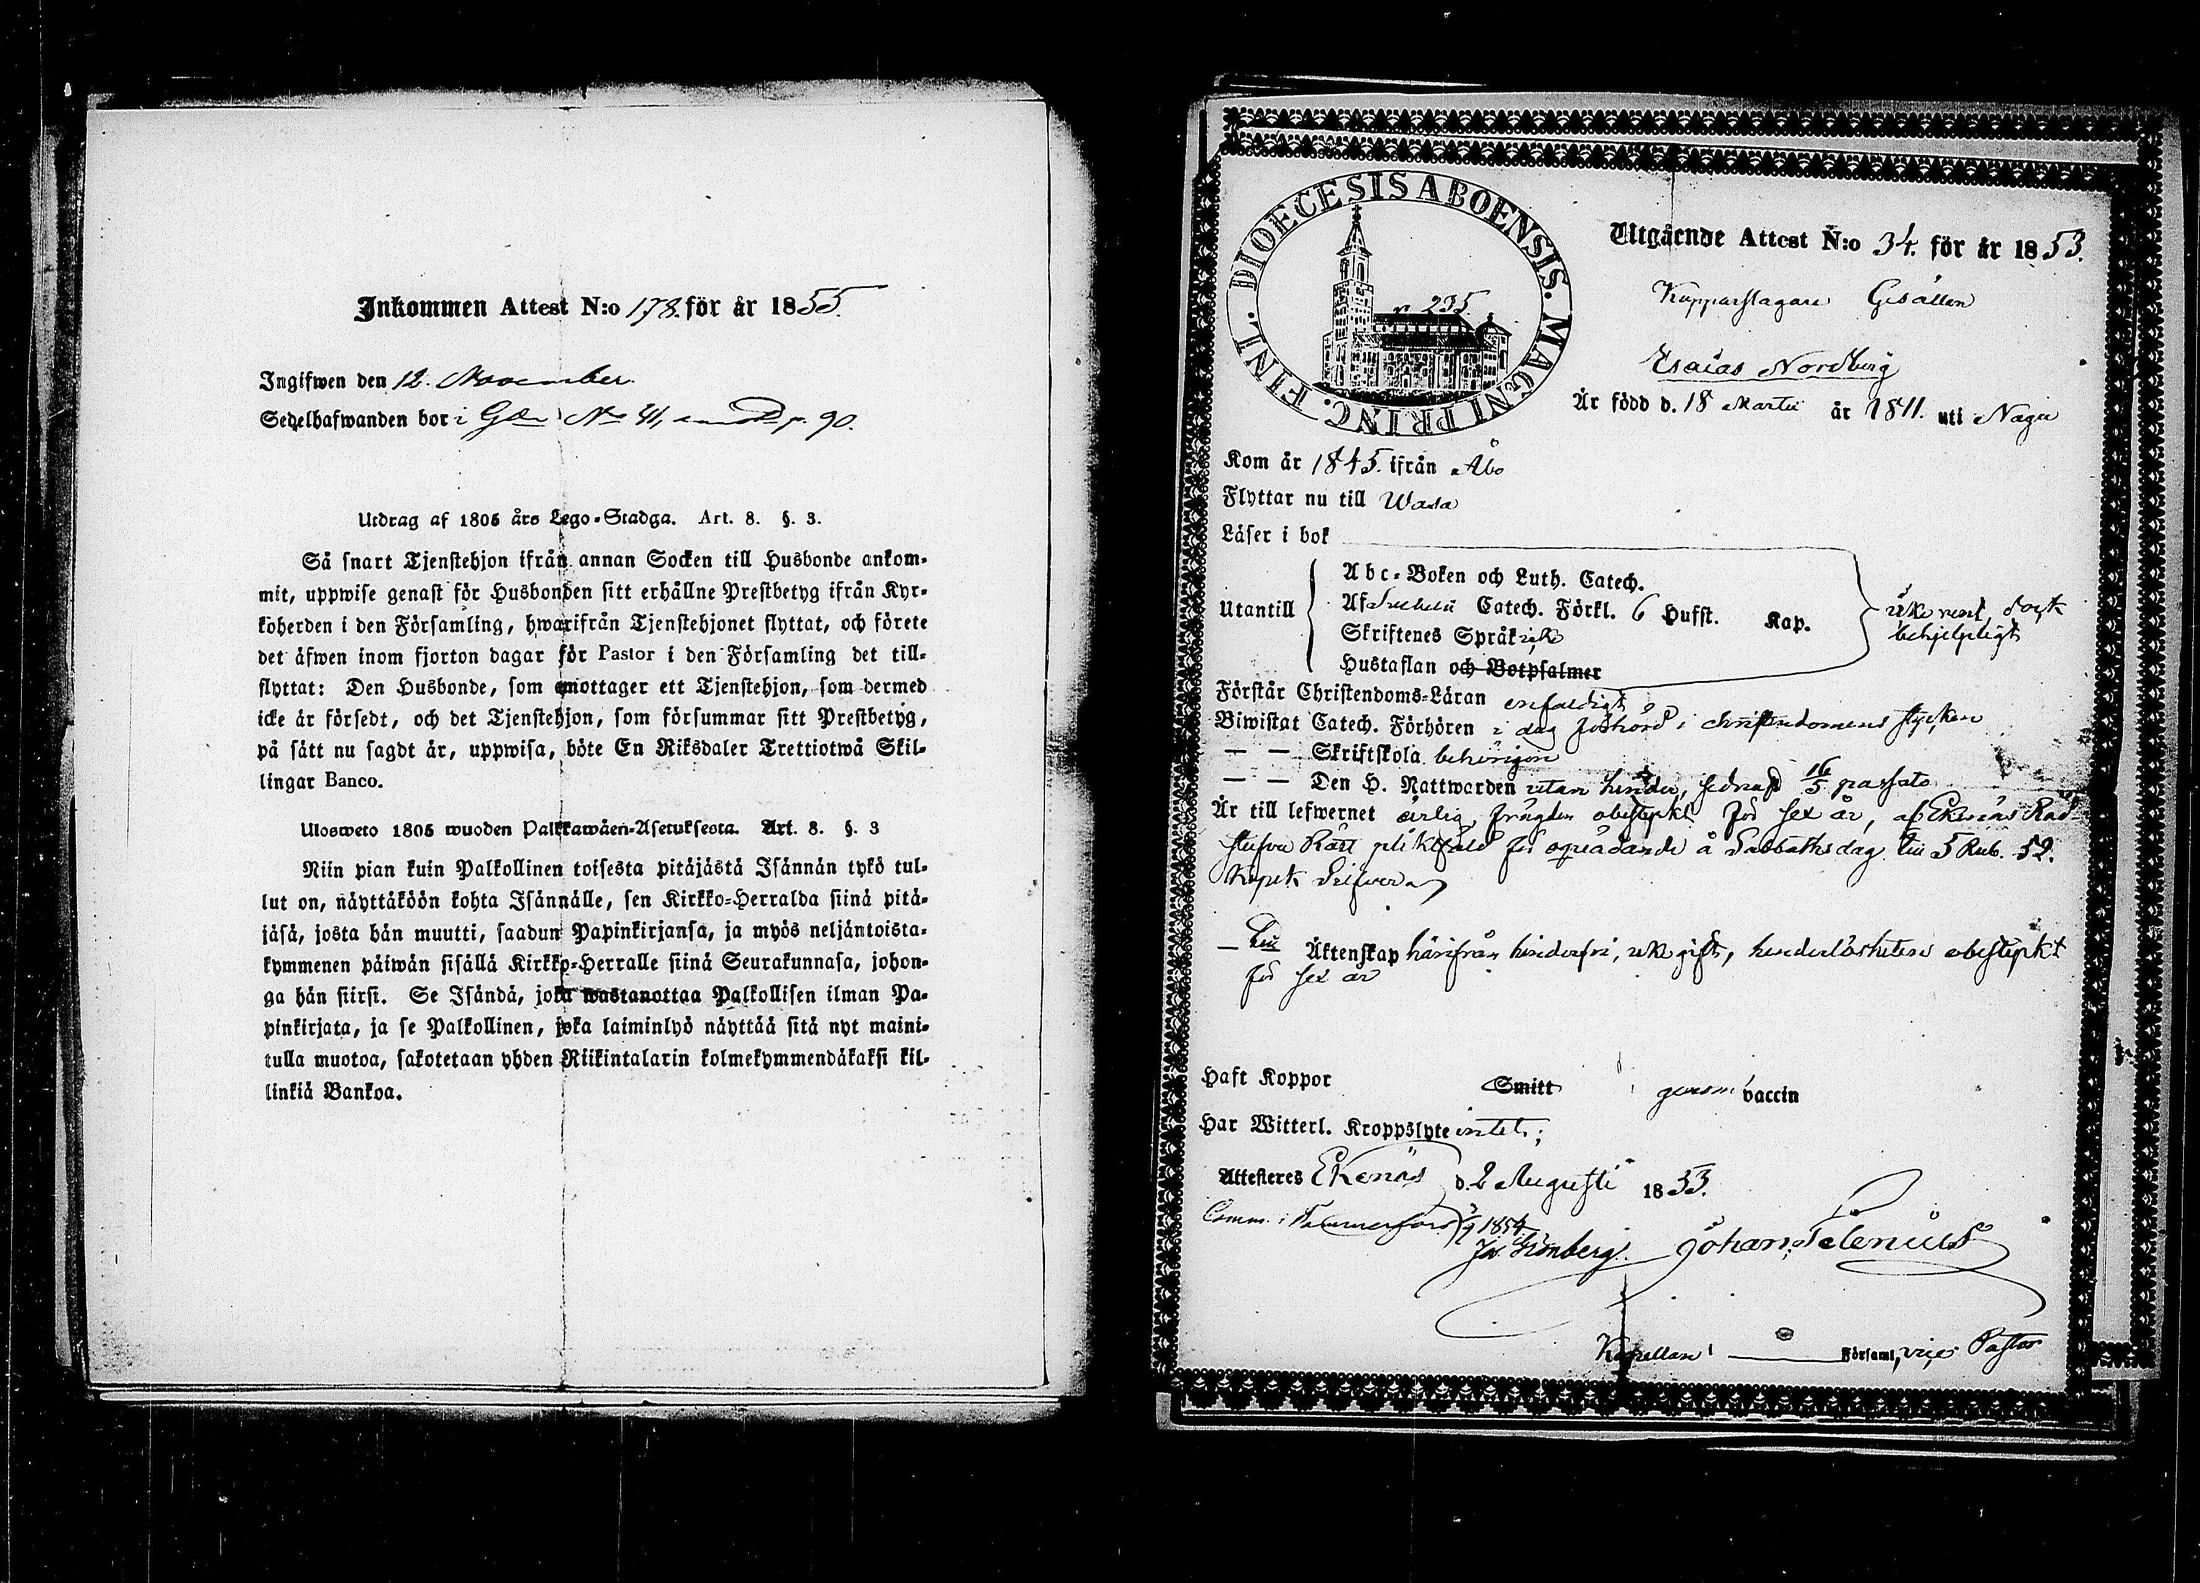 Inkommen Attest N:o 178. för år 1855.
Ingifwen den 12. November.
Sedelhafwanden bor i Går N:o 41, p. 90.
Utdrag af 1805 års Lego-Stadga. Art. 8. §. 3.
Så snart Tjenstehjon ifrån annan Socken till Husbonde ankom-
mit, uppwise genast för Husbonden sitt erhållne Prestbetyg ifrån Kyr-
koherden i den Församling, hwarifrån Tjenstehjonet flyttat, och förete
det äfwen inom fjorton dagar för Pastor i den Församling det till-
flyttat: Den Husbonde, som emottager ett Tjenstehjon, som dermed
icke är försedt, och det Tjenstehjon, som försummar sitt Prestbetyg,
på sätt nu sagdt är, uppwisa, böte En Riksdaler Trettiotwå Skil-
lingar Banco.
Ulosweto 1805 wuoden Palkkawäen-Asetuksesta. Art. 8. §. 3
Niin pian kuin Palkollinen toisesta pitäjästä Isännän tykö tul-
lut on, näyttäköön kohta Isännälle, sen Kirkko-Herralda siinä pitä-
jäsä, josta hän muutti, saadun Papinkirjansa, ja myös neljäntoista-
kymmenen päiwän sisällä Kirkko-Herralle siinä Seurakunnasa, johon-
ga hän siirsi. Se Isändä, joka wastanottaa Palkollisen ilman Pa-
pinkirjata, ja se Palkollinen, joka laiminlyö näyttää sitä nyt maini-
tulla muotoa, sakotetaan yhden Riikintalarin kolmekymmendäkaksi kil-
linkiä Bankoa.
DIOECESIS ABOENSIS. MAGNI PRINC. FINL.
n 235.
Utgående Attest N:o 34. för år 1853.
Kopparslagare Gesällen
Esaias Nordberg
Är född d. 18 Martii år 1811. uti Nagu
Kom år 1845. ifrån Åbo
Flyttar nu till Wasa
Läser i bok
Utantill
Abc-Boken och Luth. Catech.
Af Svebelii Catech. Förkl. 6 Hufst. Kap.
Skriftenes Språk icke
Hustaflan och Botpsalmer
icke rent dock
behjelpligt
Förstår Christendoms-Läran enfaldigt
Biwistat Catech. Förhören i dag förhörd i christendomens stycken
— — Skriftskola behörigen
— — Den H. Nattwarden utan hinder, sednast 16/5 passato
Är till lefwernet ärlig, frägden obestyrkt för sex år, af Ekenäs Råd-
stufvu Rätt pliktfäld för oljud å Sabbathsdag till 5 Rub. 52.
Kopek Silfver
— Till Äktenskap härifrån hinderfri, icke gift, hinderlösheten obestyrkt
för sex år
Haft Koppor Smitt genom vaccin
Har Witterl. Kroppslyte intet;
Attesteres Ekenäs d. 2 Augusti 1853.
Comm. i Tammerfors 1854
Grönberg. Johan Telenius
Kapellan i Församl, vice Pastor